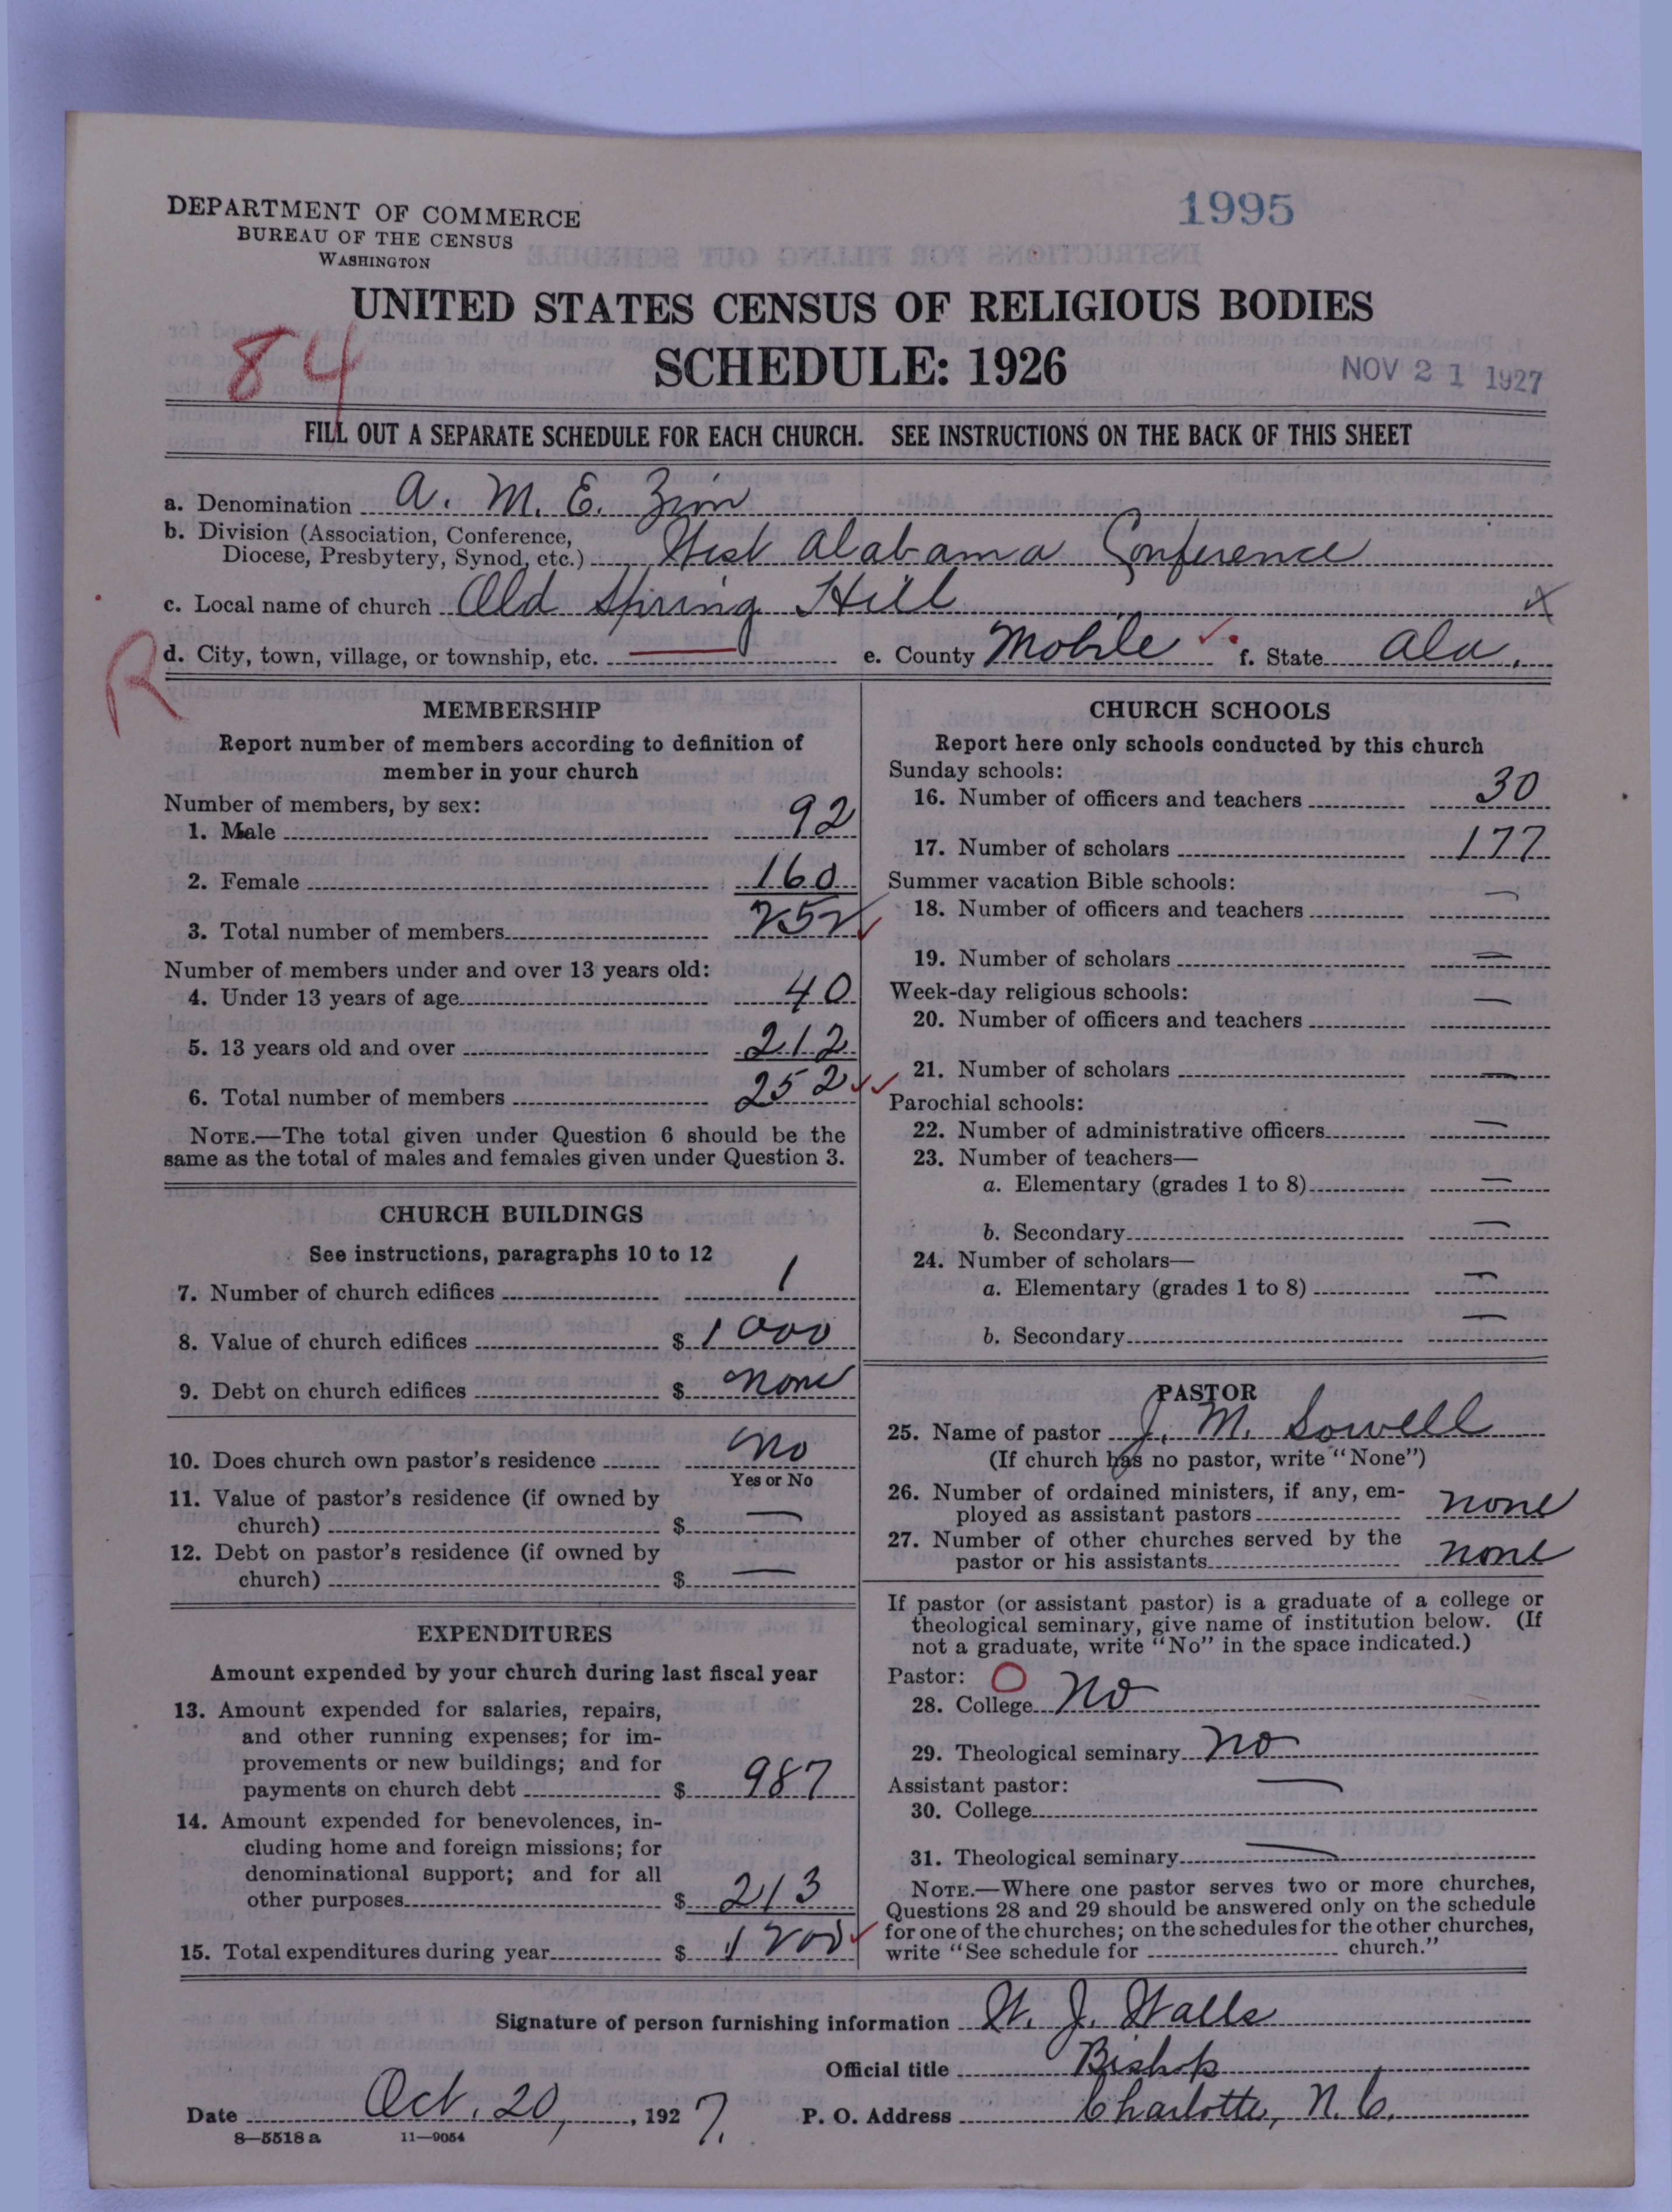 1995
DEPARTMENT OF COMMERCE
BUREAU OF THE CENSUS
WASHINGTON
UNITED STATES CENSUS OF RELIGIOUS BODIES
84
SCHEDULE: 1926
NOV 21 1927
FILL OUT A SEPARATE SCHEDULE FOR EACH CHURCH. SEE INSTRUCTIONS ON THE BACK OF THIS SHEET
a. Denomination A. M. E. Zion
b. Division (Association, Conference,
Diocese, Presbytery, Synod, etc.) West Alabama Conference
c. Local name of church Old Spring Hill x
R
d. City, town, village, or township, etc. — e. County Mobile ✓ f. State Ala.
MEMBERSHIP
Report number of members according to definition of
member in your church
Number of members, by sex:
1. Male 92
2. Female 160
3. Total number of members 252 ✓
Number of members under and over 13 years old:
4. Under 13 years of age 40
5. 13 years old and over 212
6. Total number of members 252 ✓✓
NOTE.—The total given under Question 6 should be the
same as the total of males and females given under Question 3.
CHURCH BUILDINGS
See instructions, paragraphs 10 to 12
7. Number of church edifices 1
8. Value of church edifices $ 1000
9. Debt on church edifices $ none
10. Does church own pastor's residence no
Yes or No
11. Value of pastor's residence (if owned by
church) $ —
12. Debt on pastor's residence (if owned by
church) $ —
EXPENDITURES
Amount expended by your church during last fiscal year
13. Amount expended for salaries, repairs,
and other running expenses; for im-
provements or new buildings; and for
payments on church debt $ 987
14. Amount expended for benevolences, in-
cluding home and foreign missions; for
denominational support; and for all
other purposes $ 213
15. Total expenditures during year $ 1200 ✓
CHURCH SCHOOLS
Report here only schools conducted by this church
Sunday schools:
16. Number of officers and teachers 30
17. Number of scholars 177
Summer vacation Bible schools:
18. Number of officers and teachers —
19. Number of scholars —
Week-day religious schools:
20. Number of officers and teachers —
21. Number of scholars —
Parochial schools:
22. Number of administrative officers —
23. Number of teachers—
a. Elementary (grades 1 to 8) —
b. Secondary —
24. Number of scholars—
a. Elementary (grades 1 to 8) —
b. Secondary —
PASTOR
25. Name of pastor J. M. Sowell
(If church has no pastor, write "None")
26. Number of ordained ministers, if any, em-
ployed as assistant pastors none
27. Number of other churches served by the
pastor or his assistants none
If pastor (or assistant pastor) is a graduate of a college or
theological seminary, give name of institution below. (If
not a graduate, write "No" in the space indicated.)
Pastor: O
28. College No
29. Theological seminary no
Assistant pastor: —
30. College
31. Theological seminary —
NOTE.—Where one pastor serves two or more churches,
Questions 28 and 29 should be answered only on the schedule
for one of the churches; on the schedules for the other churches,
write "See schedule for church."
Signature of person furnishing information W. J. Walls
Official title Bishop
Date Oct. 20, 1927. P. O. Address Charlotte, N. C.
8—5518 a 11—9054